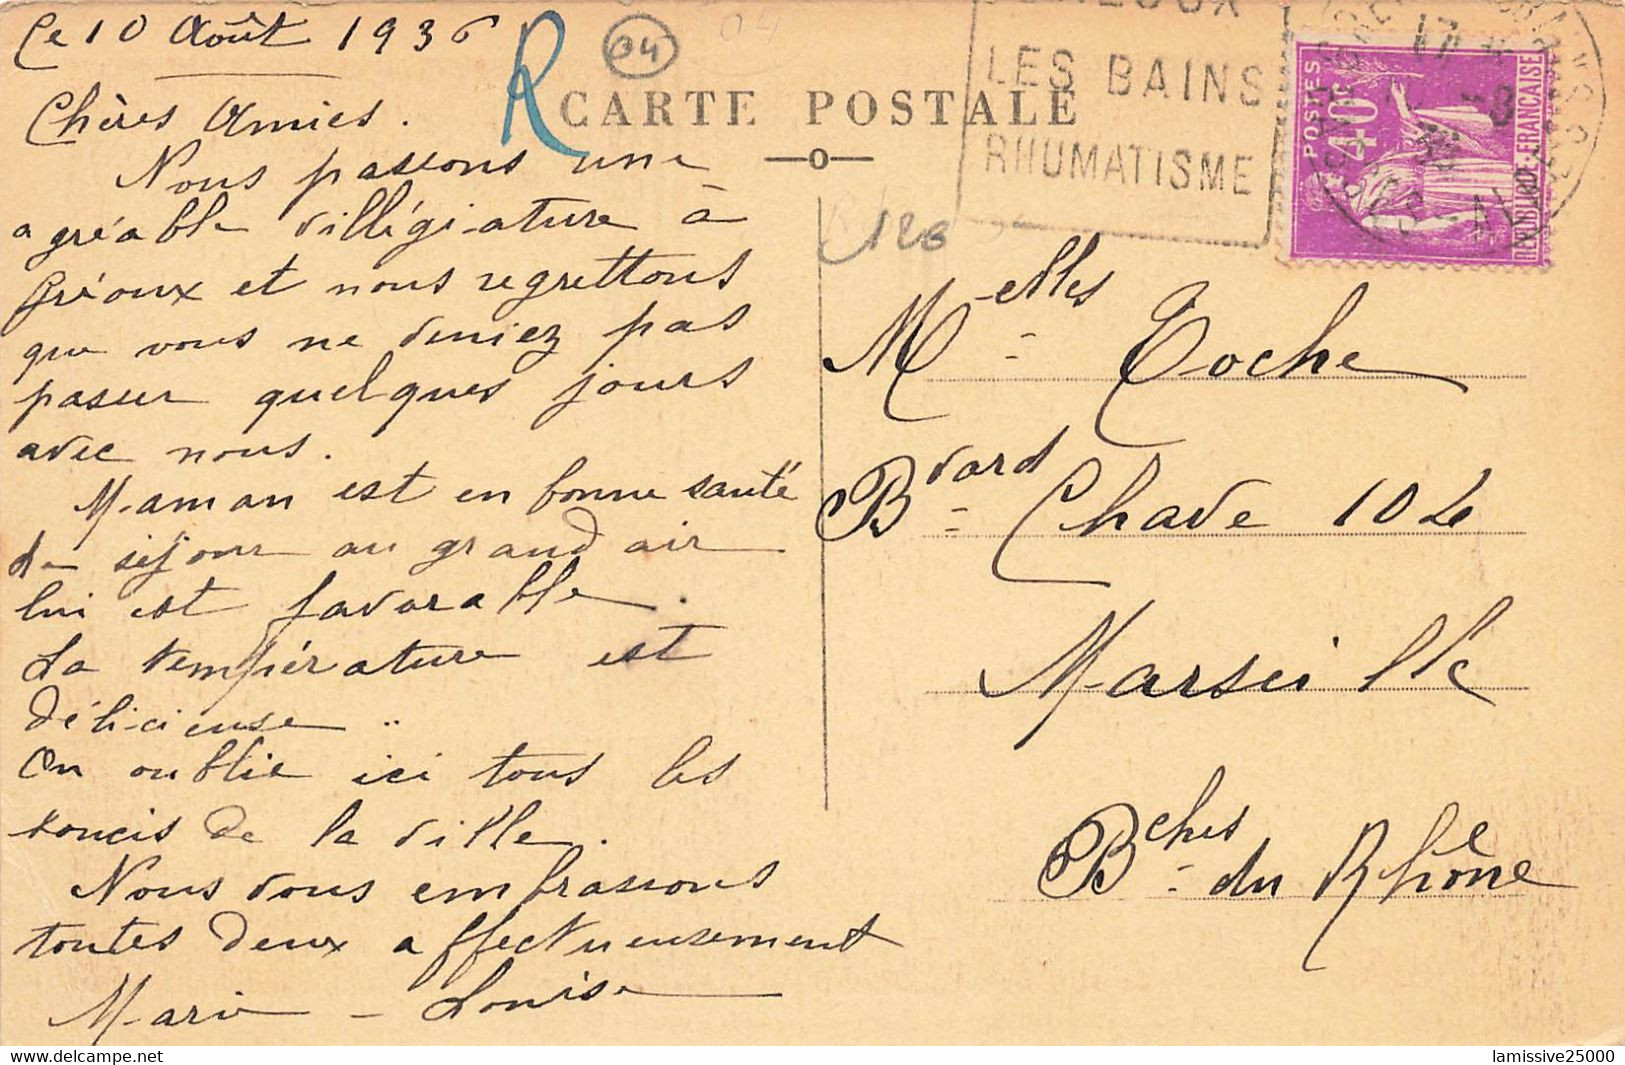 Le 10 Août 1936
R
04
04
CARTE POSTALE
LES BAINS
RHUMATISME
POSTES
40
REPUBLIQUE FRANÇAISE
17
-8
36
126
Chères Amies.
Nous passons une
agréable villégiature à
Gréoux et nous regrettons
que vous ne veniez pas
passer quelques jours
avec nous.
Maman est en bonne santé
le séjour au grand air
lui est favorable.
La température est
délicieuse ..
On oublie ici tous les
soucis de la ville.
Nous vous embrassons
toutes deux affectueusement
Marie-Louise
Melles Toche
Bvard Chave 102
Marseille
Bches du Rhône
lamissive25000